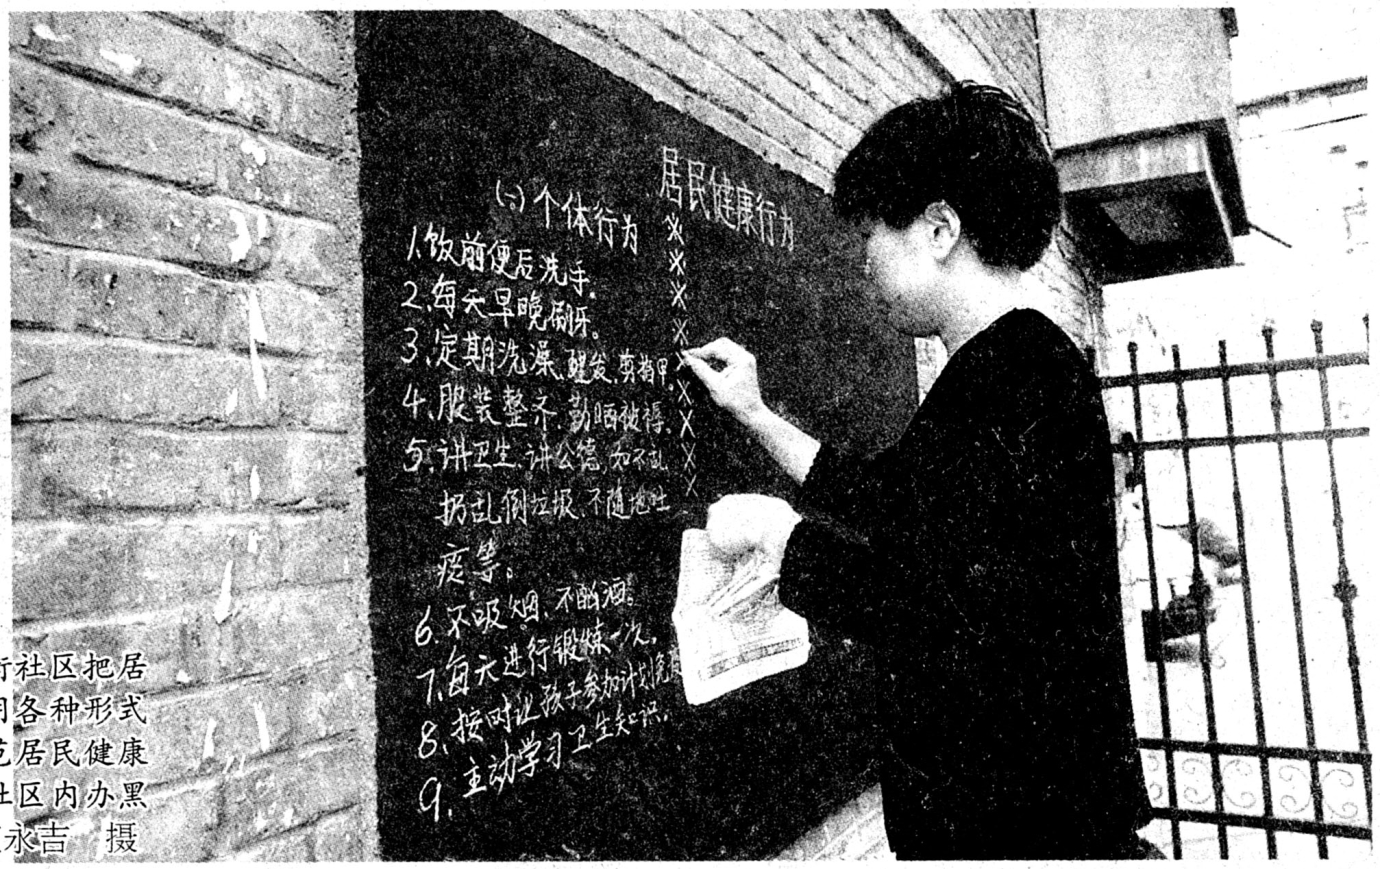 居民健康行为
㈠个体行为
1、饮前便后洗手。
2、每天早晚刷牙。
3、定期洗澡、理发、剪指甲。
4、服装整齐、勤晒被褥。
5、讲卫生、讲公德，如不乱
扔乱倒垃圾、不随地吐
痰等。
6、不吸烟、不酗酒。
7、每天进行锻炼一次。
8、按时让孩子参加计划免
9、主动学习卫生知识。
街社区把居
用各种形式
范居民健康
社区内办黑
永吉 摄